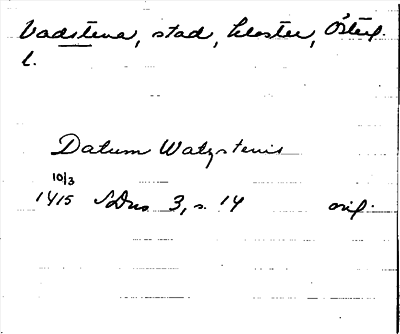 Vadstena, stad, kloster, Österg.
l.
Datum Watzstenis
10/3
1415 SDns 3, s. 14 orig.